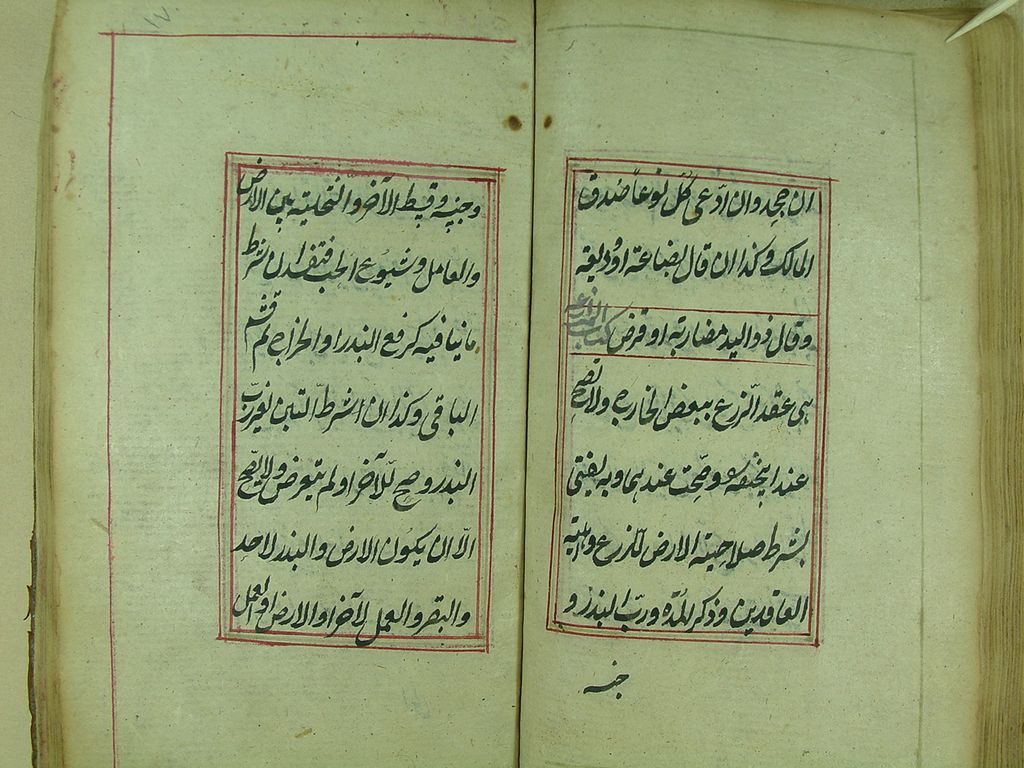 ان جحد وان ادعى كل نوعا صدق
المالك وكذا ان قال بضاعة او وديعة
وقال ذو اليد مضاربة او قرض كتاب المزارعة
هي عقد الزرع ببعض الخارج ولا تصح
عند ابيحنيفة وصحت عندهما وبه يفتى
بشرط صلاحية الارض للزرع واهلية
العاقدين وذكر المدة ورب البذر و
جنسه
وجنسه وقسط الآخر والتخلية بين الارض
والعامل وشيوع الحب فتفسد ان شرط
ما ينافيه كرفع البذر او الخراج ثم قسم
الباقى وكذا ان شرط التبن لغير رب
البذر وصح للآخر او لم يتعرض ولا تصح
الا ان يكون الارض والبذر لاحد
والبقر والعمل لآخر او الارض او العمل
١٧